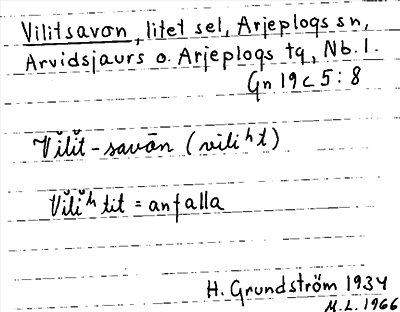 Vilitsavon, litet sel, Arjeplogs sn,
Arvidsjaurs o. Arjeplogs tg, Nb. l.
Gn 19 c 5 : 8
Vĭlĭt - savōn (viliʰt)
Vĭlĭʰtit = anfalla
H. Grundström 1934
M.L. 1966